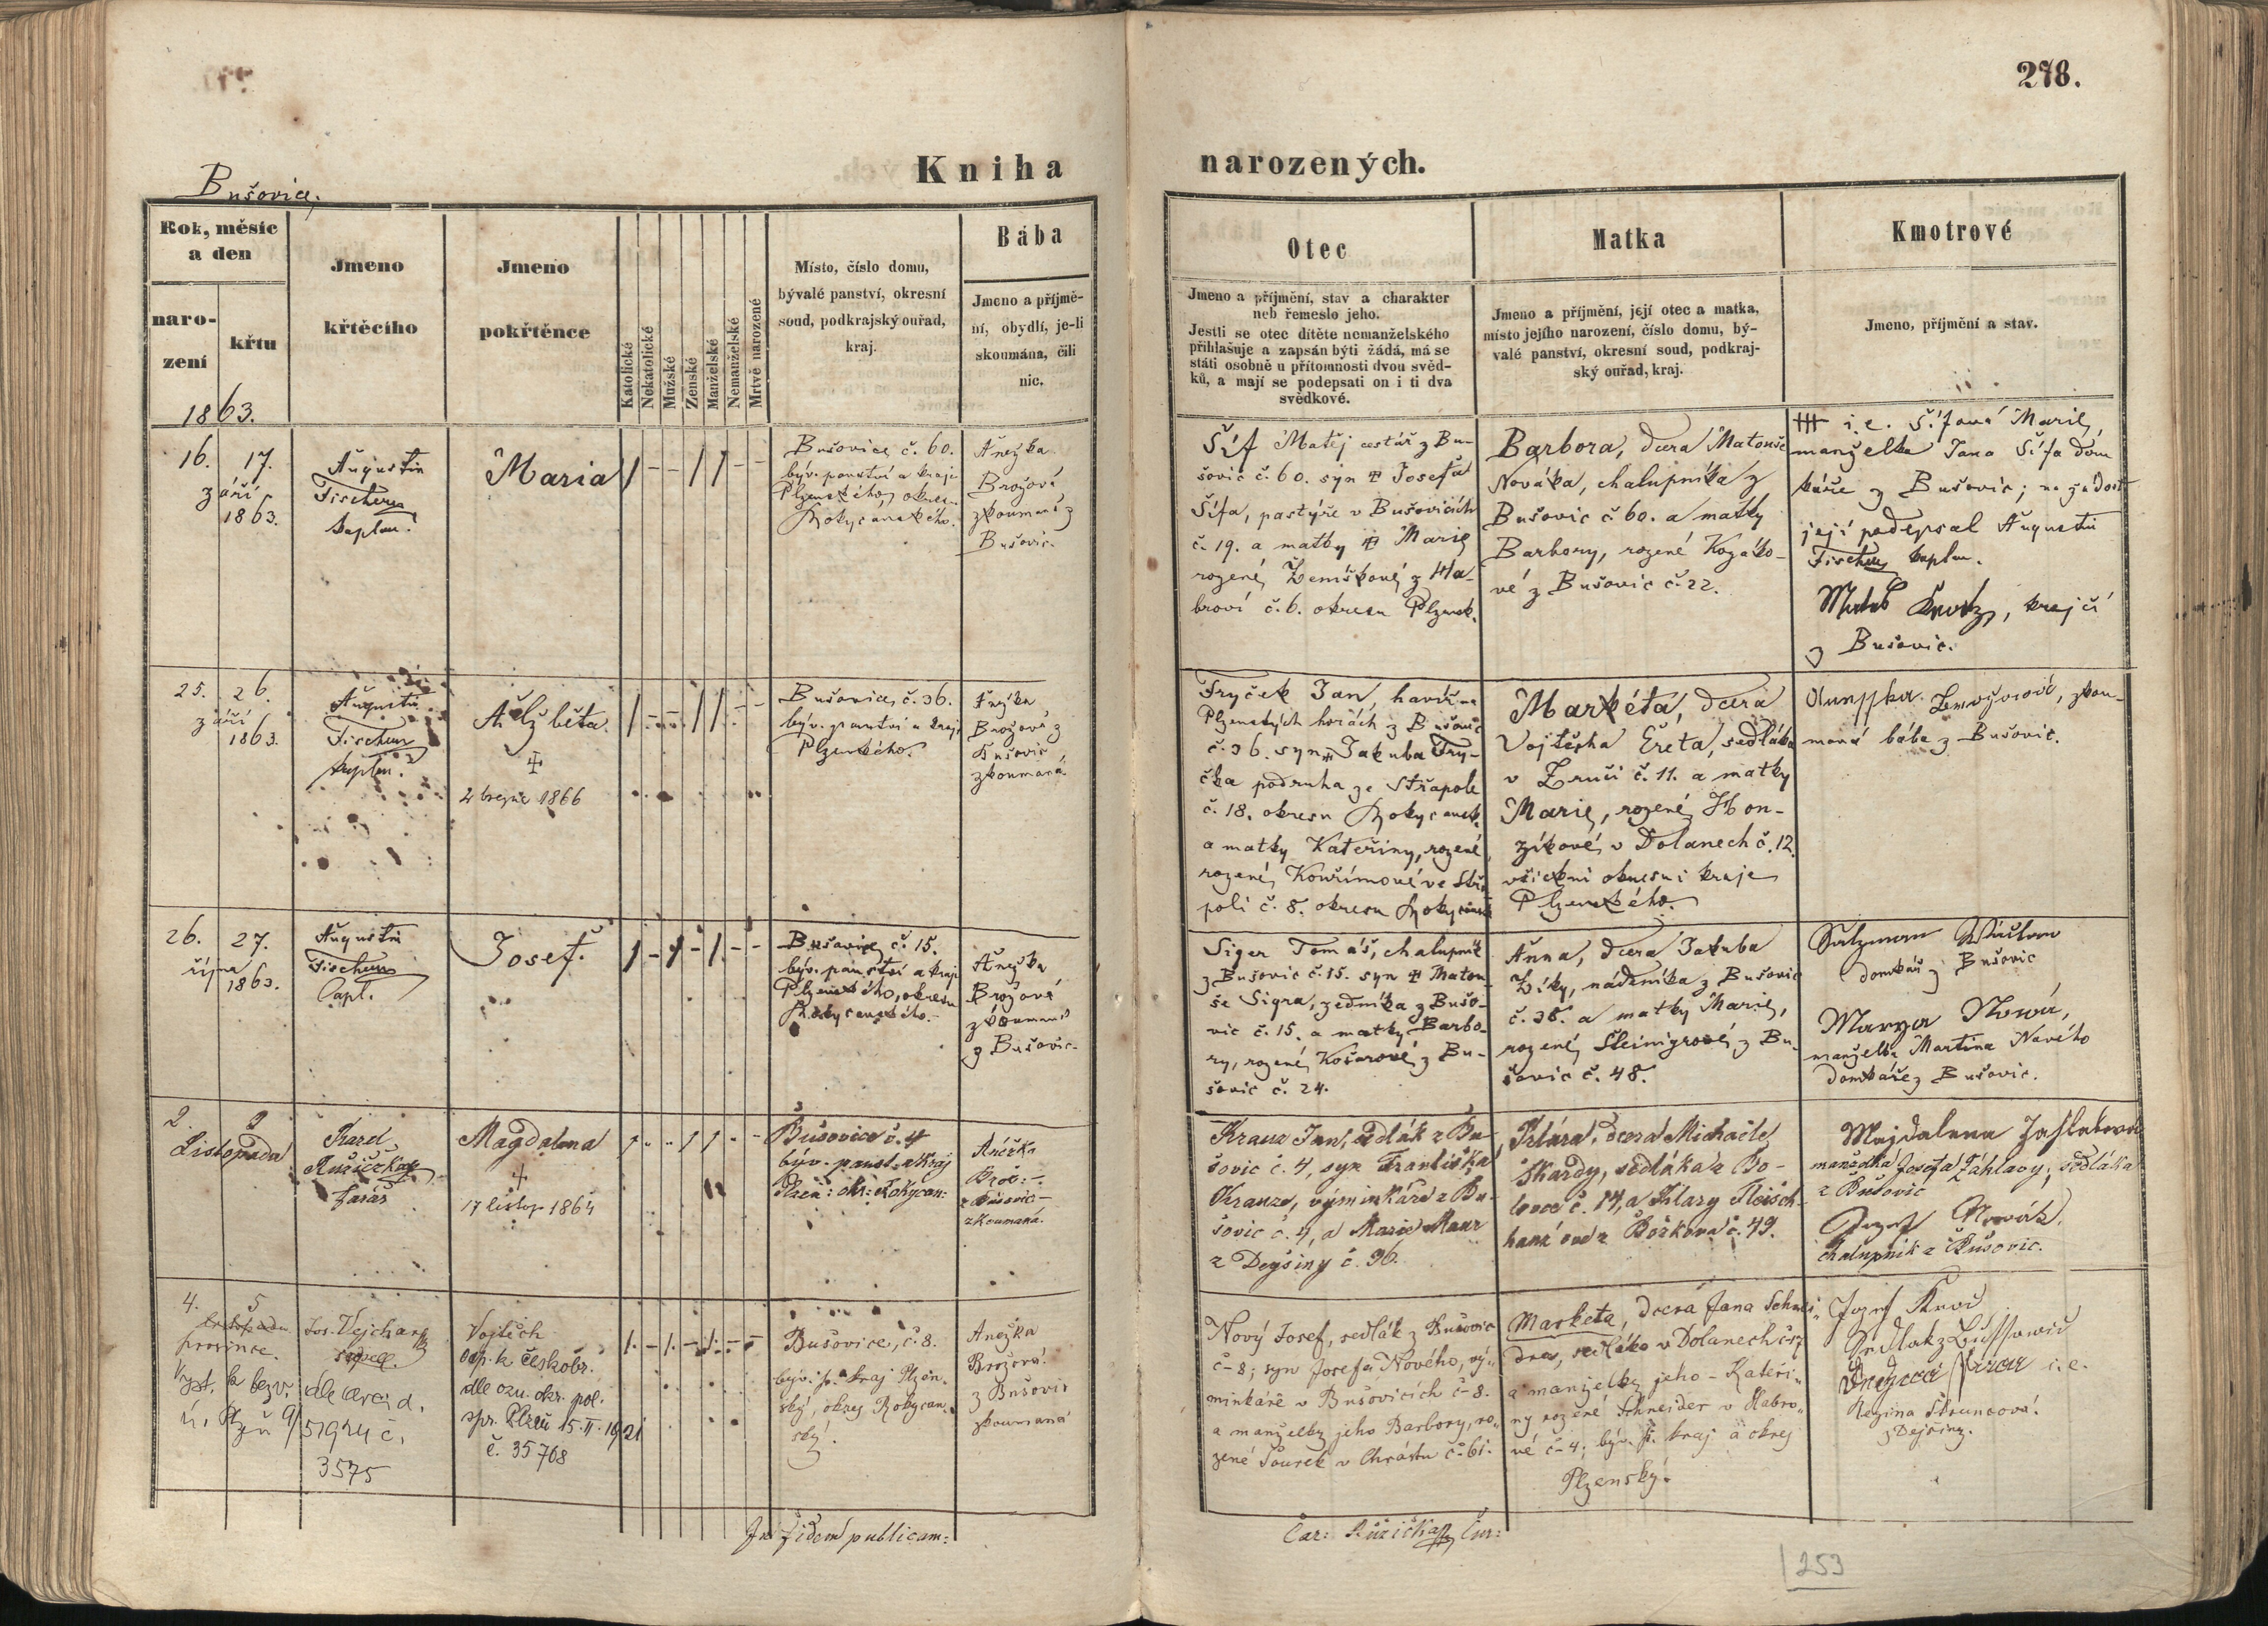 278.
Kniha narozených.
Bušovice
Rok, měsíc
a den
naro-
zení
křtu
1863.
Jmeno
křtěcího
Jmeno
pokřtěnce
Katolické
Nekatolické
Mužské
Ženské
Manželské
Nemanželské
Mrtvě narozené
Místo, číslo domu,
bývalé panství, okresní
soud, podkrajský ouřad,
kraj.
Bába
Jmeno a příjmě-
ní, obydlí, je-li
skoumána, čili
nic.
Otec
Jmeno a příjmění, stav a charakter
neb řemeslo jeho.
Jestli se otec dítěte nemanželského
přihlašuje a zapsán býti žádá, má se
státi osobně u přítomnosti dvou svěd-
ků, a mají se podepsati on i ti dva
svědkové.
Matka
Jmeno a příjmění, její otec a matka,
místo jejího narození, číslo domu, bý-
valé panství, okresní soud, podkraj-
ský ouřad, kraj.
Kmotrové
Jmeno, příjmění a stav.
16. 17.
září
1863.
Augustin
Fischer
kaplan.
Maria
Bušovice č. 60.
býv. panství a kraje
Plzenského, okres.
Rokycanského.
Anežka
Brožová
zkoumaná z
Bušovic.
Šíf Matěj cestář z Bu-
šovic č. 60. syn Josefa
Šífa, pastýře v Bušovicích
č. 19. a matky Marie
rozené Žemškové z Ha-
broví č. 6. okresu Plzensk.
Barbora, dcera Matouše
Nováka, chalupníka z
Bušovic č 60. a matky
Barbory, rozené Kozáko-
vé z Bušovic č. 22.
+++ i.e. Šífová Marie,
manželka Jana Šífa dom
káře z Bušovic; na žádost
její podepsal Augustin
Fischer kaplan.
krejčí
z Bušovic.
25. 26.
září
1863.
Augustin
Fischer
kaplan.
Alžběta.
2 března 1866
Bušovice, č. 36.
býv. panství a kraje
Plzenského.
Anežka
Brožová z
Bušovic
zkoumaná
Fryček Jan, havíř na
Plzenských horách z Bušovic
č. 36. syn Jakuba Fry-
čka podruha ze Střapole
č. 18. okresu Rokycansk.
a matky Kateřiny, rozené
rozené Kouřímové ve Střa
poli č. 8. okresu Rokycansk
Markéta, dcera
Vojtěcha Ereta, sedláka
v Zruči č. 11. a matky
Marie, rozené Hon-
zíkové v Dolanech č. 12.
všickni okresu i kraje
Plzenského.
zkou-
maná bába z Bušovic.
26. 27.
října
1863.
Augustin
Fischer
Capl.
Josef.
Bušovice č. 15.
býv. panství a kraje
Plzenského, okresu
Rokycanského.
Anežka
Brožová
zkoumaná
z Bušovic.
Siger Tomáš, chalupník
z Bušovic č. 15. syn Matou-
še Sigra, zedníka z Bušo-
vic č. 15. a matky Barbo-
ry, rozené Košarové z Bu-
šovic č. 24.
Anna, dcera Jakuba
Zíky, nádeníka z Bušovic
č. 38. a matky Marie,
rozené Šteinigrové z Bu-
šovic č. 48.
domkář z Bušovic
Marya Nowá,
manželka Martina Nového
domkáře z Bušovic.
2. 3
Listopadu
Karel
Ružička
farář
Magdalena
17 listop 1864
Bušovice č. 4
býv. panst. a kraj
Plzeň: okr: Rokycan:
Anežka
Brož:
z Bušovic
zkoumaná.
Kraus Jan, sedlák z Bu-
šovic č. 4, syn Františka
Krause, výminkáře z Bu-
šovic č. 4, a Marie Maur
z Dejšiny č. 36.
Klára, dcera Michaile
Škardy, sedláka z Bo-
levce č. 17, a Klary Fleisch-
z Božkova č. 49.
Majdalena Zahlabová
manželka Josefa Záhlavy, sedláka
z Bušovic
Josef Novák,
chalupník z Bušovic.
4. 5
listopadu
prosince.
Vyst. k bezv.
Jos. Vejchar
Vojtěch
odp. k českobr.
dle ozn. okr. pol.
spr. Plzeň 15. II. 1921
č. 35768
3575
Bušovice, č. 8.
býv. p. kraj Plzen.
ský, okres Rokycan.
ský.
Anežka
Brožová
z Bušovic
zkoumaná
Nový Josef, sedlák z Bušovic
č. 8; syn Josefa Nového, vý-
minkáře v Bušovicích č. 8.
a manželky jeho Barbory, ro-
zené Šourek v Chrástu č. 61.
Marketa, dcera Jana Schnei-
dra, sedláka v Dolanech
a manželky jeho Kateři-
ny rozené Schneider v Habro-
vé č. 4; býv. p. kraj a okres
Plzenský.
Jozef
Sedlak z Bussowic
i.e.
Regina Štruncová.
z Dejšiny.
In fidem publicam:
Car: Ružička Cur:
253